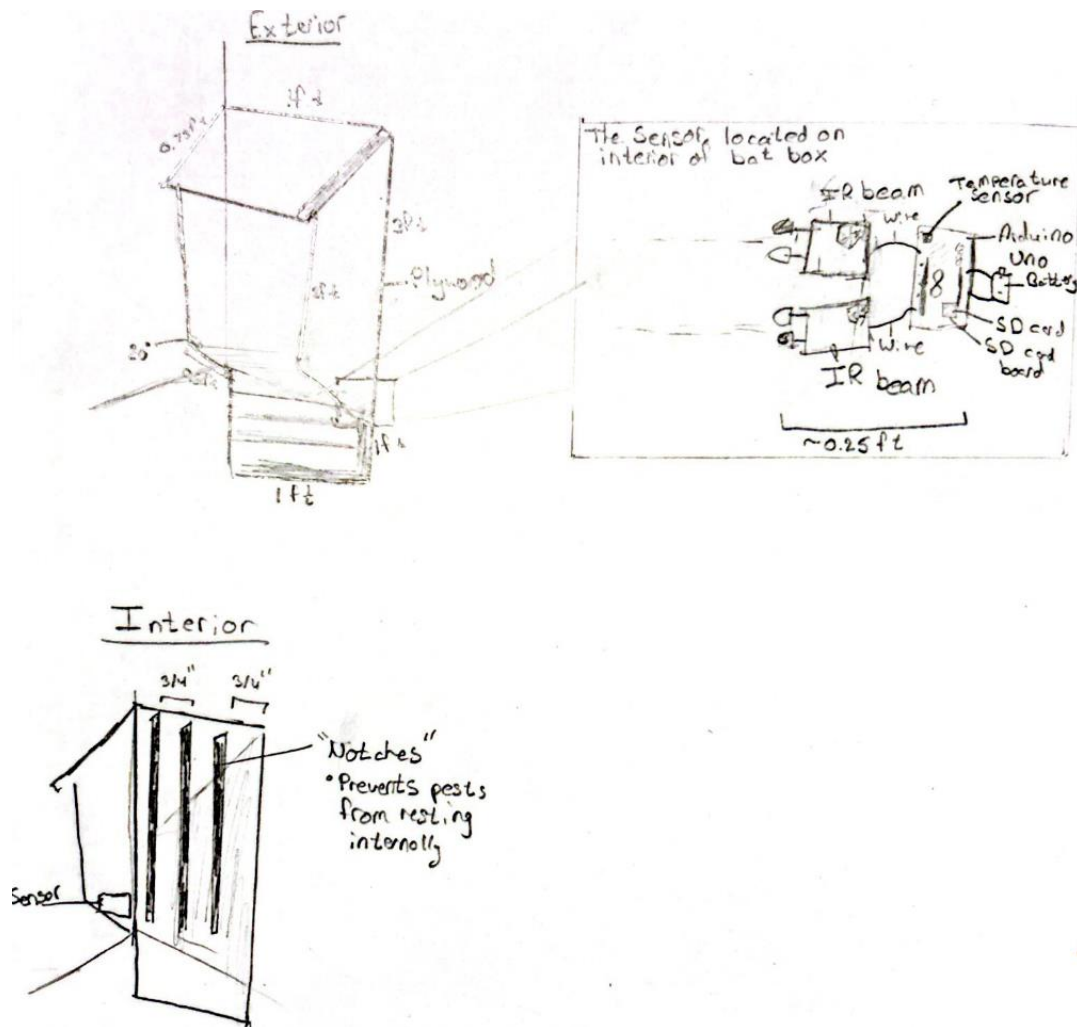 Exterior
1ft
0.75ft
2ft
Plywood
30°
1ft
1ft
The Sensor, located on
interior of bat box
IR beam
Temperature
sensor
wire
Arduino
Uno
Battery
SD card
SD card
board
wire
IR beam
~0.25ft
Interior
3/4"
3/4"
"Notches"
• Prevents pests
from resting
internally
Sensor